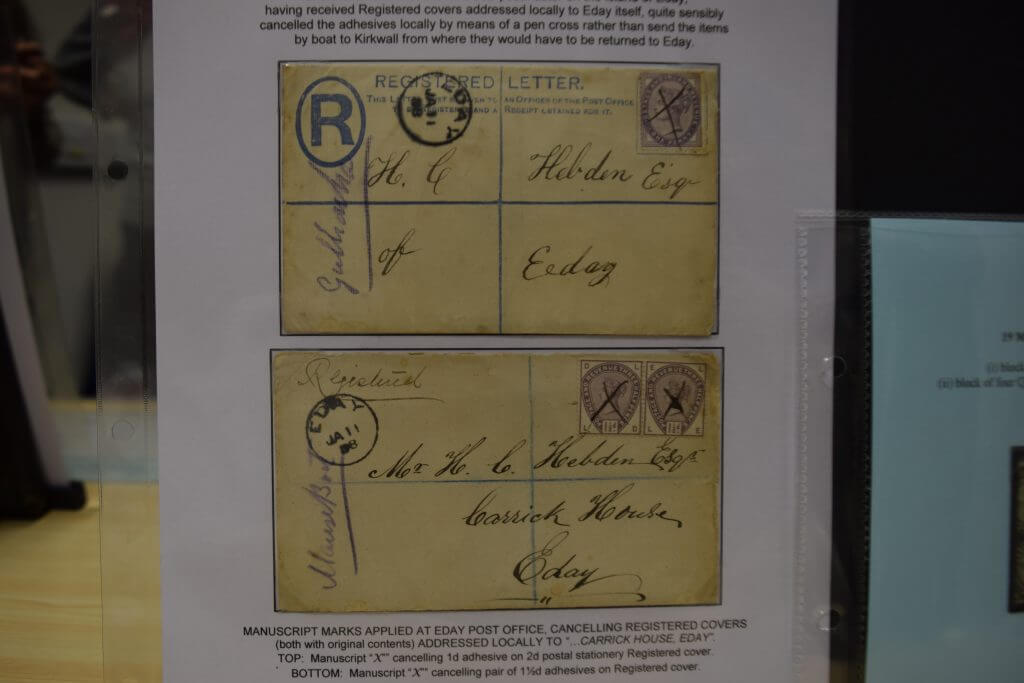 having received Registered covers addressed locally to Eday itself, quite sensibly
cancelled the adhesives locally by means of a pen cross rather than send the items
by boat to Kirkwall from where they would have to be returned to Eday.
REGISTERED LETTER.
THIS LETTER MUST BE GIVEN TO AN OFFICER OF THE POST OFFICE
TO BE REGISTERED AND A RECEIPT OBTAINED FOR IT.
R
EDAY
JA 11
88
H. C Hebden Esqr
of Eeday
Registered
EDAY
JA 11
88
D L E L
POSTAGE AND REVENUE THREE HALFPENCE
1½d 1½d
L D L E
Mr H. C. Hebden Esqr
Carrick House
Eday
MANUSCRIPT MARKS APPLIED AT EDAY POST OFFICE, CANCELLING REGISTERED COVERS
(both with original contents) ADDRESSED LOCALLY TO "...CARRICK HOUSE, EDAY".
TOP: Manuscript "X"" cancelling 1d adhesive on 2d postal stationery Registered cover.
BOTTOM: Manuscript "X"" cancelling pair of 1½d adhesives on Registered cover.
19 N
(i) block
(ii) block of four